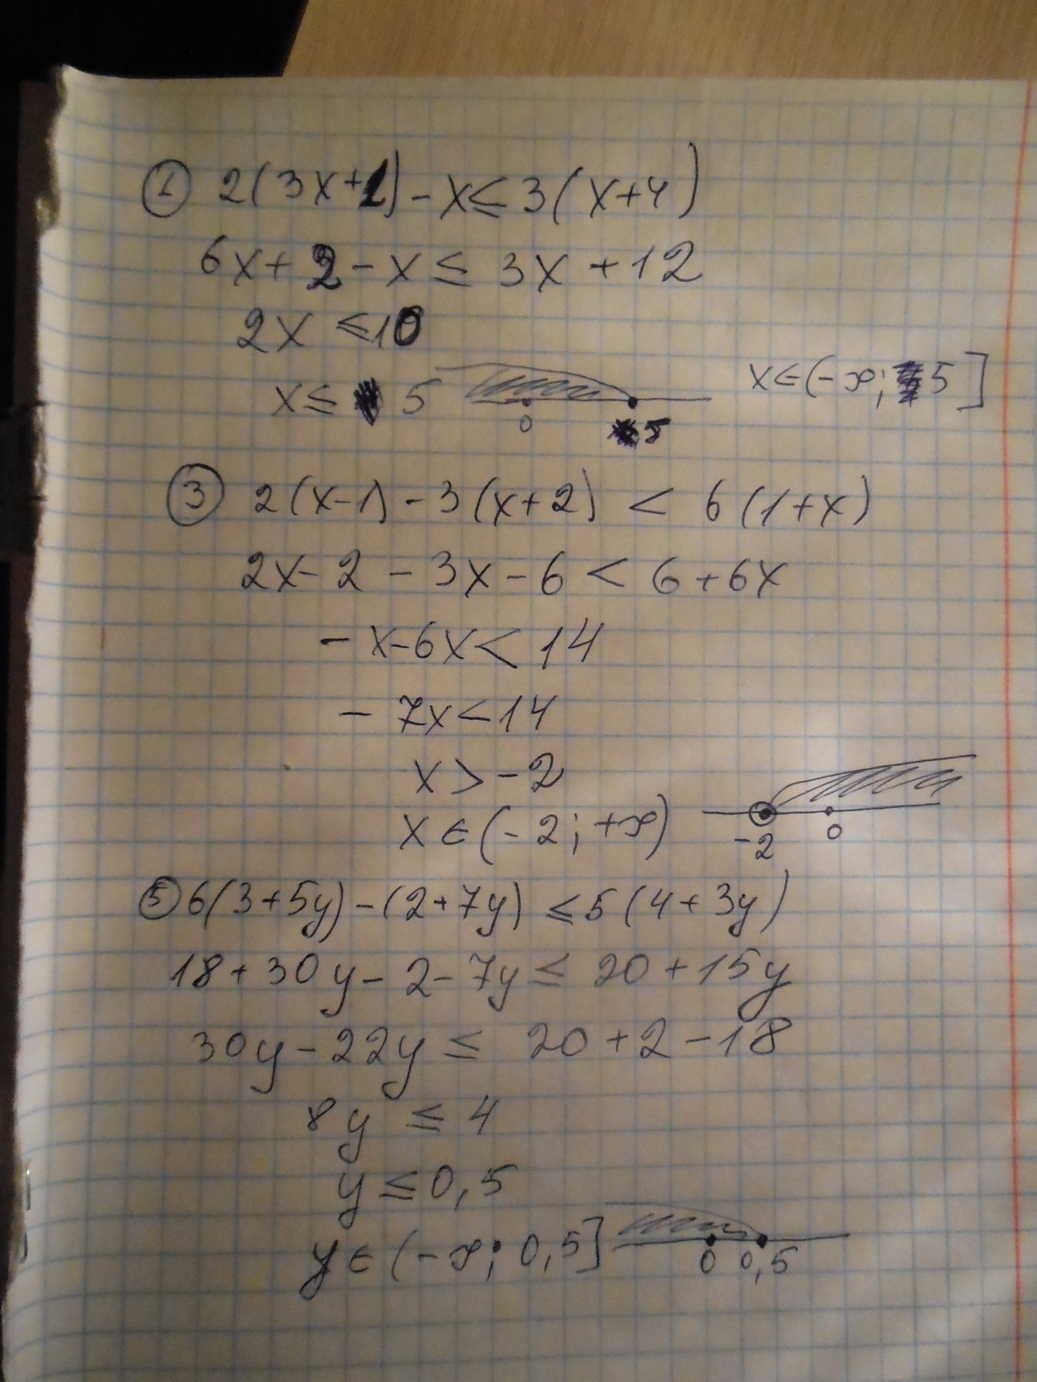 ① 2(3x+1)-x≤3(x+4)
6x+2-x≤3x+12
2x≤10
x≤5
0 5
x∈(-∞;5]
③ 2(x-1)-3(x+2)<6(1+x)
2x-2-3x-6<6+6x
-x-6x<14
-7x<14
x>-2
x∈(-2;+∞)
-2 0
⑤ 6(3+5y)-(2+7y)≤5(4+3y)
18+30y-2-7y≤20+15y
30y-22y≤20+2-18
8y≤4
y≤0,5
y∈(-∞;0,5]
0 0,5